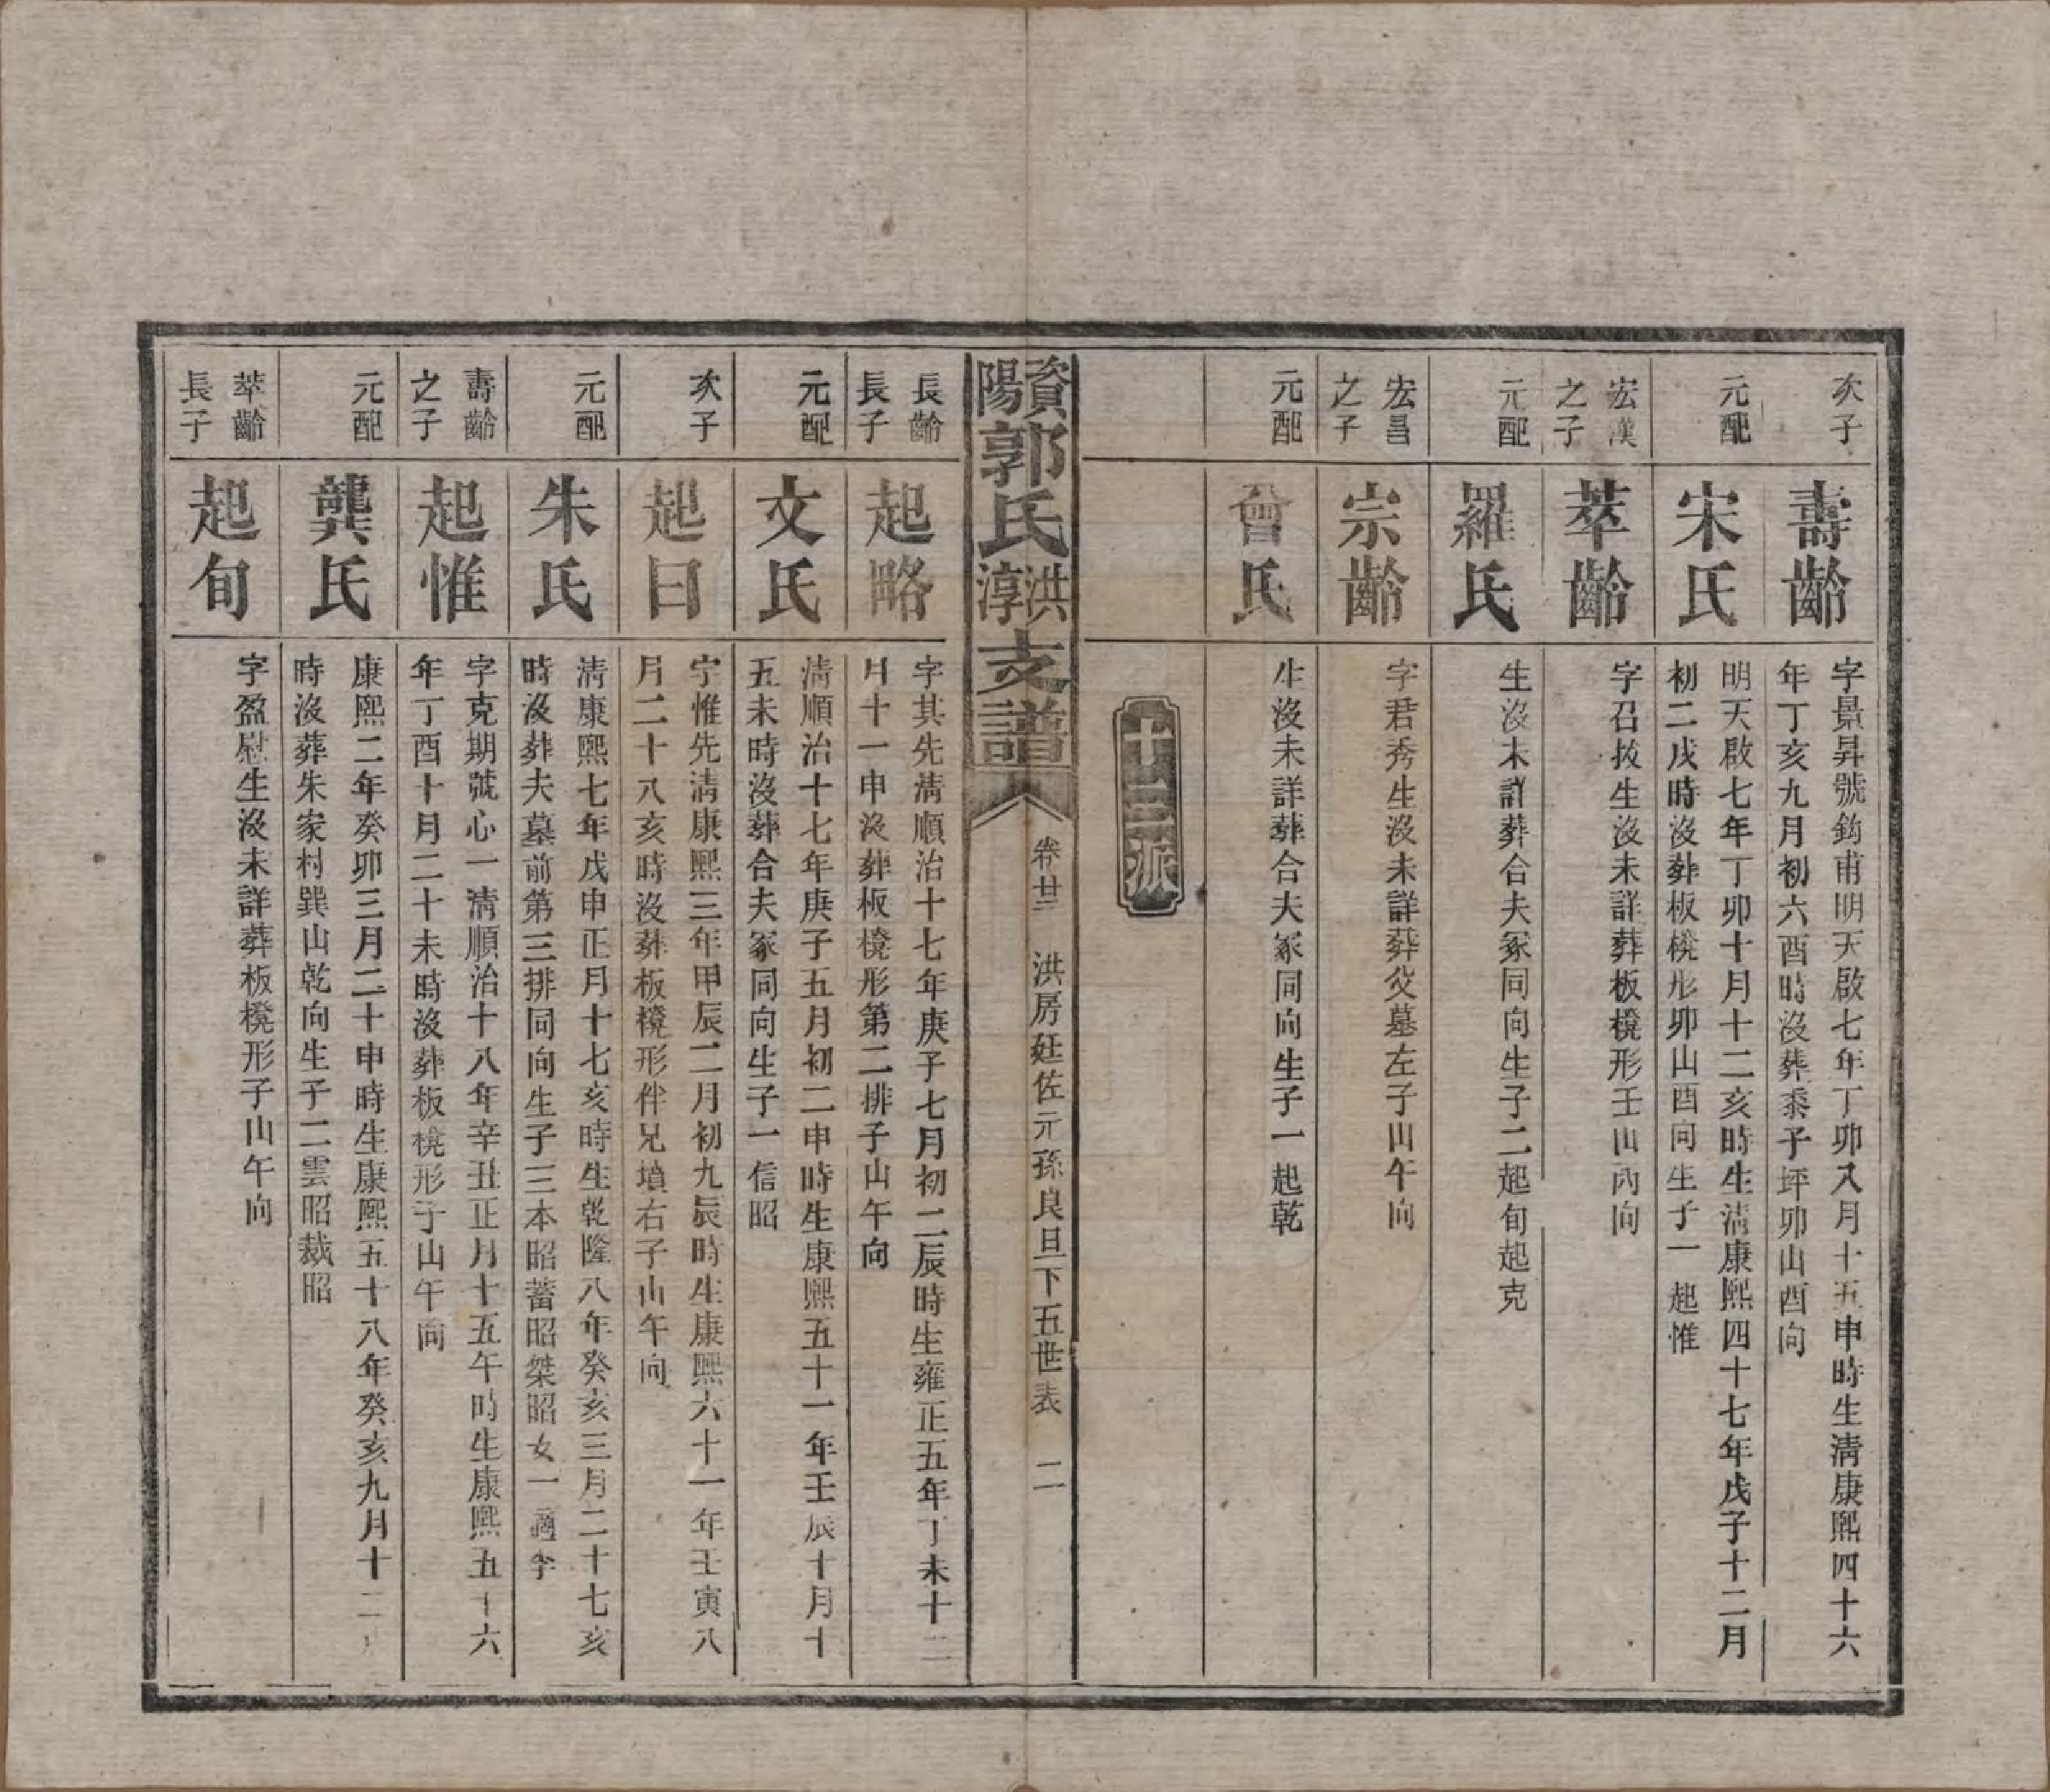 次子
壽齡
字景昇號鈞甫明天啟七年丁卯八月十五申時生清康熙四十六
年丁亥九月初六酉時沒葬黍子坪卯山酉向
元配
宋氏
明天啟七年丁卯十月十二亥時生清康熙四十七年戊子十二月
初二戌時沒葬板櫈形卯山酉向生子一起惟
宏漢
之子
萃齡
字召拔生沒未詳葬板櫈形壬山丙向
元配
羅氏
生沒未詳葬合夫冢同向生子二起旬起克
宏昌
之子
宗齡
字君秀生沒未詳葬父墓左子山午向
元配
曾氏
生沒未詳葬合夫冢同向生子一起乾
十三派
資陽郭氏洪淳支譜
卷廿三 洪房廷佐元孫良旦下五世表 二
長齡
長子
起略
字其先清順治十七年庚子七月初二辰時生雍正五年丁未十二
月十一申沒葬板櫈形第二排子山午向
元配
文氏
清順治十七年庚子五月初二申時生康熙五十一年壬辰十月十
五未時沒葬合夫冢同向生子一信昭
次子
起曰
字惟先清康熙三年甲辰二月初九辰時生康熙六十一年壬寅八
月二十八亥時沒葬板櫈形伴兄墳右子山午向
元配
朱氏
清康熙七年戊申正月十七亥時生乾隆八年癸亥三月二十七亥
時沒葬夫墓前第三排同向生子三本昭蓄昭桀昭女一適李
壽齡
之子
起惟
字克期號心一清順治十八年辛丑正月十五午時生康熙五十六
年丁酉十月二十未時沒葬板櫈形子山午向
元配
龔氏
康熙二年癸卯三月二十申時生康熙五十八年癸亥九月十二
時沒葬朱家村巽山乾向生子二雲昭裁昭
萃齡
長子
起旬
字盈慰生沒未詳葬板櫈形子山午向